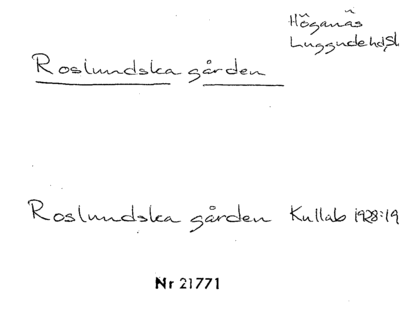 Höganäs
Luggude hd, Sk
Roslundska gården
Roslundska gården Kullab 1928:19
Nr 21771